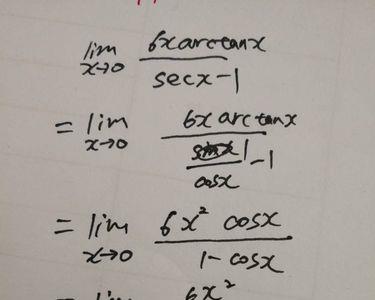 lim x→0 6x arctanx / secx-1
= lim x→0 6x arctanx / 1/cosx -1
= lim x→0 6x² cosx / 1-cosx
= lim 6x²